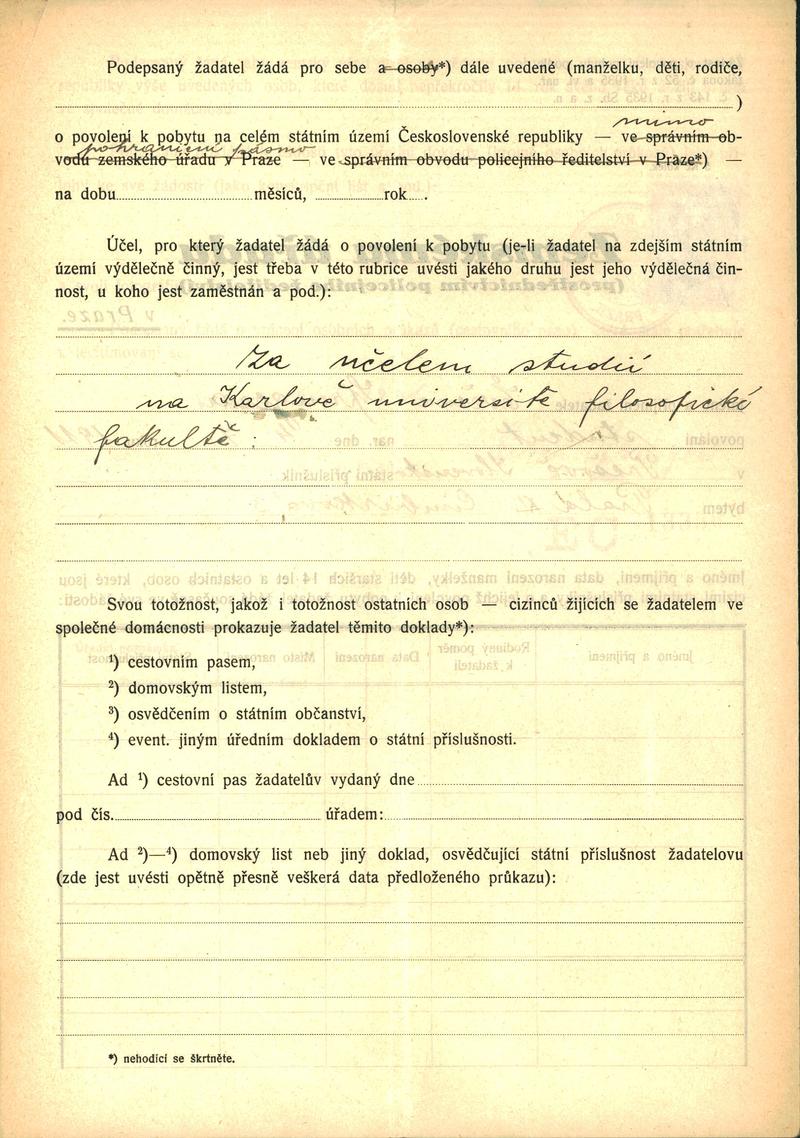 Podepsaný žadatel žádá pro sebe a osoby*) dále uvedené (manželku, děti, rodiče,
)
mimo
o povolení k pobytu na celém státním území Československé republiky — ve správním ob-
pohraniční pásmo
vodu zemského úřadu v Praze — ve správním obvodu policejního ředitelství v Praze*) —
na dobu měsíců, rok .
Účel, pro který žadatel žádá o povolení k pobytu (je-li žadatel na zdejším státním
území výdělečně činný, jest třeba v této rubrice uvésti jakého druhu jest jeho výdělečná čin-
nost, u koho jest zaměstnán a pod.):
Za účelem studií
na Karlově universitě filosofické
fakultě :
Svou totožnost, jakož i totožnost ostatních osob — cizinců žijících se žadatelem ve
společné domácnosti prokazuje žadatel těmito doklady*):
¹) cestovním pasem,
²) domovským listem,
³) osvědčením o státním občanství,
⁴) event. jiným úředním dokladem o státní příslušnosti.
Ad ¹) cestovní pas žadatelův vydaný dne
pod čís. úřadem:
Ad ²)—⁴) domovský list neb jiný doklad, osvědčující státní příslušnost žadatelovu
(zde jest uvésti opětně přesně veškerá data předloženého průkazu):
*) nehodící se škrtněte.